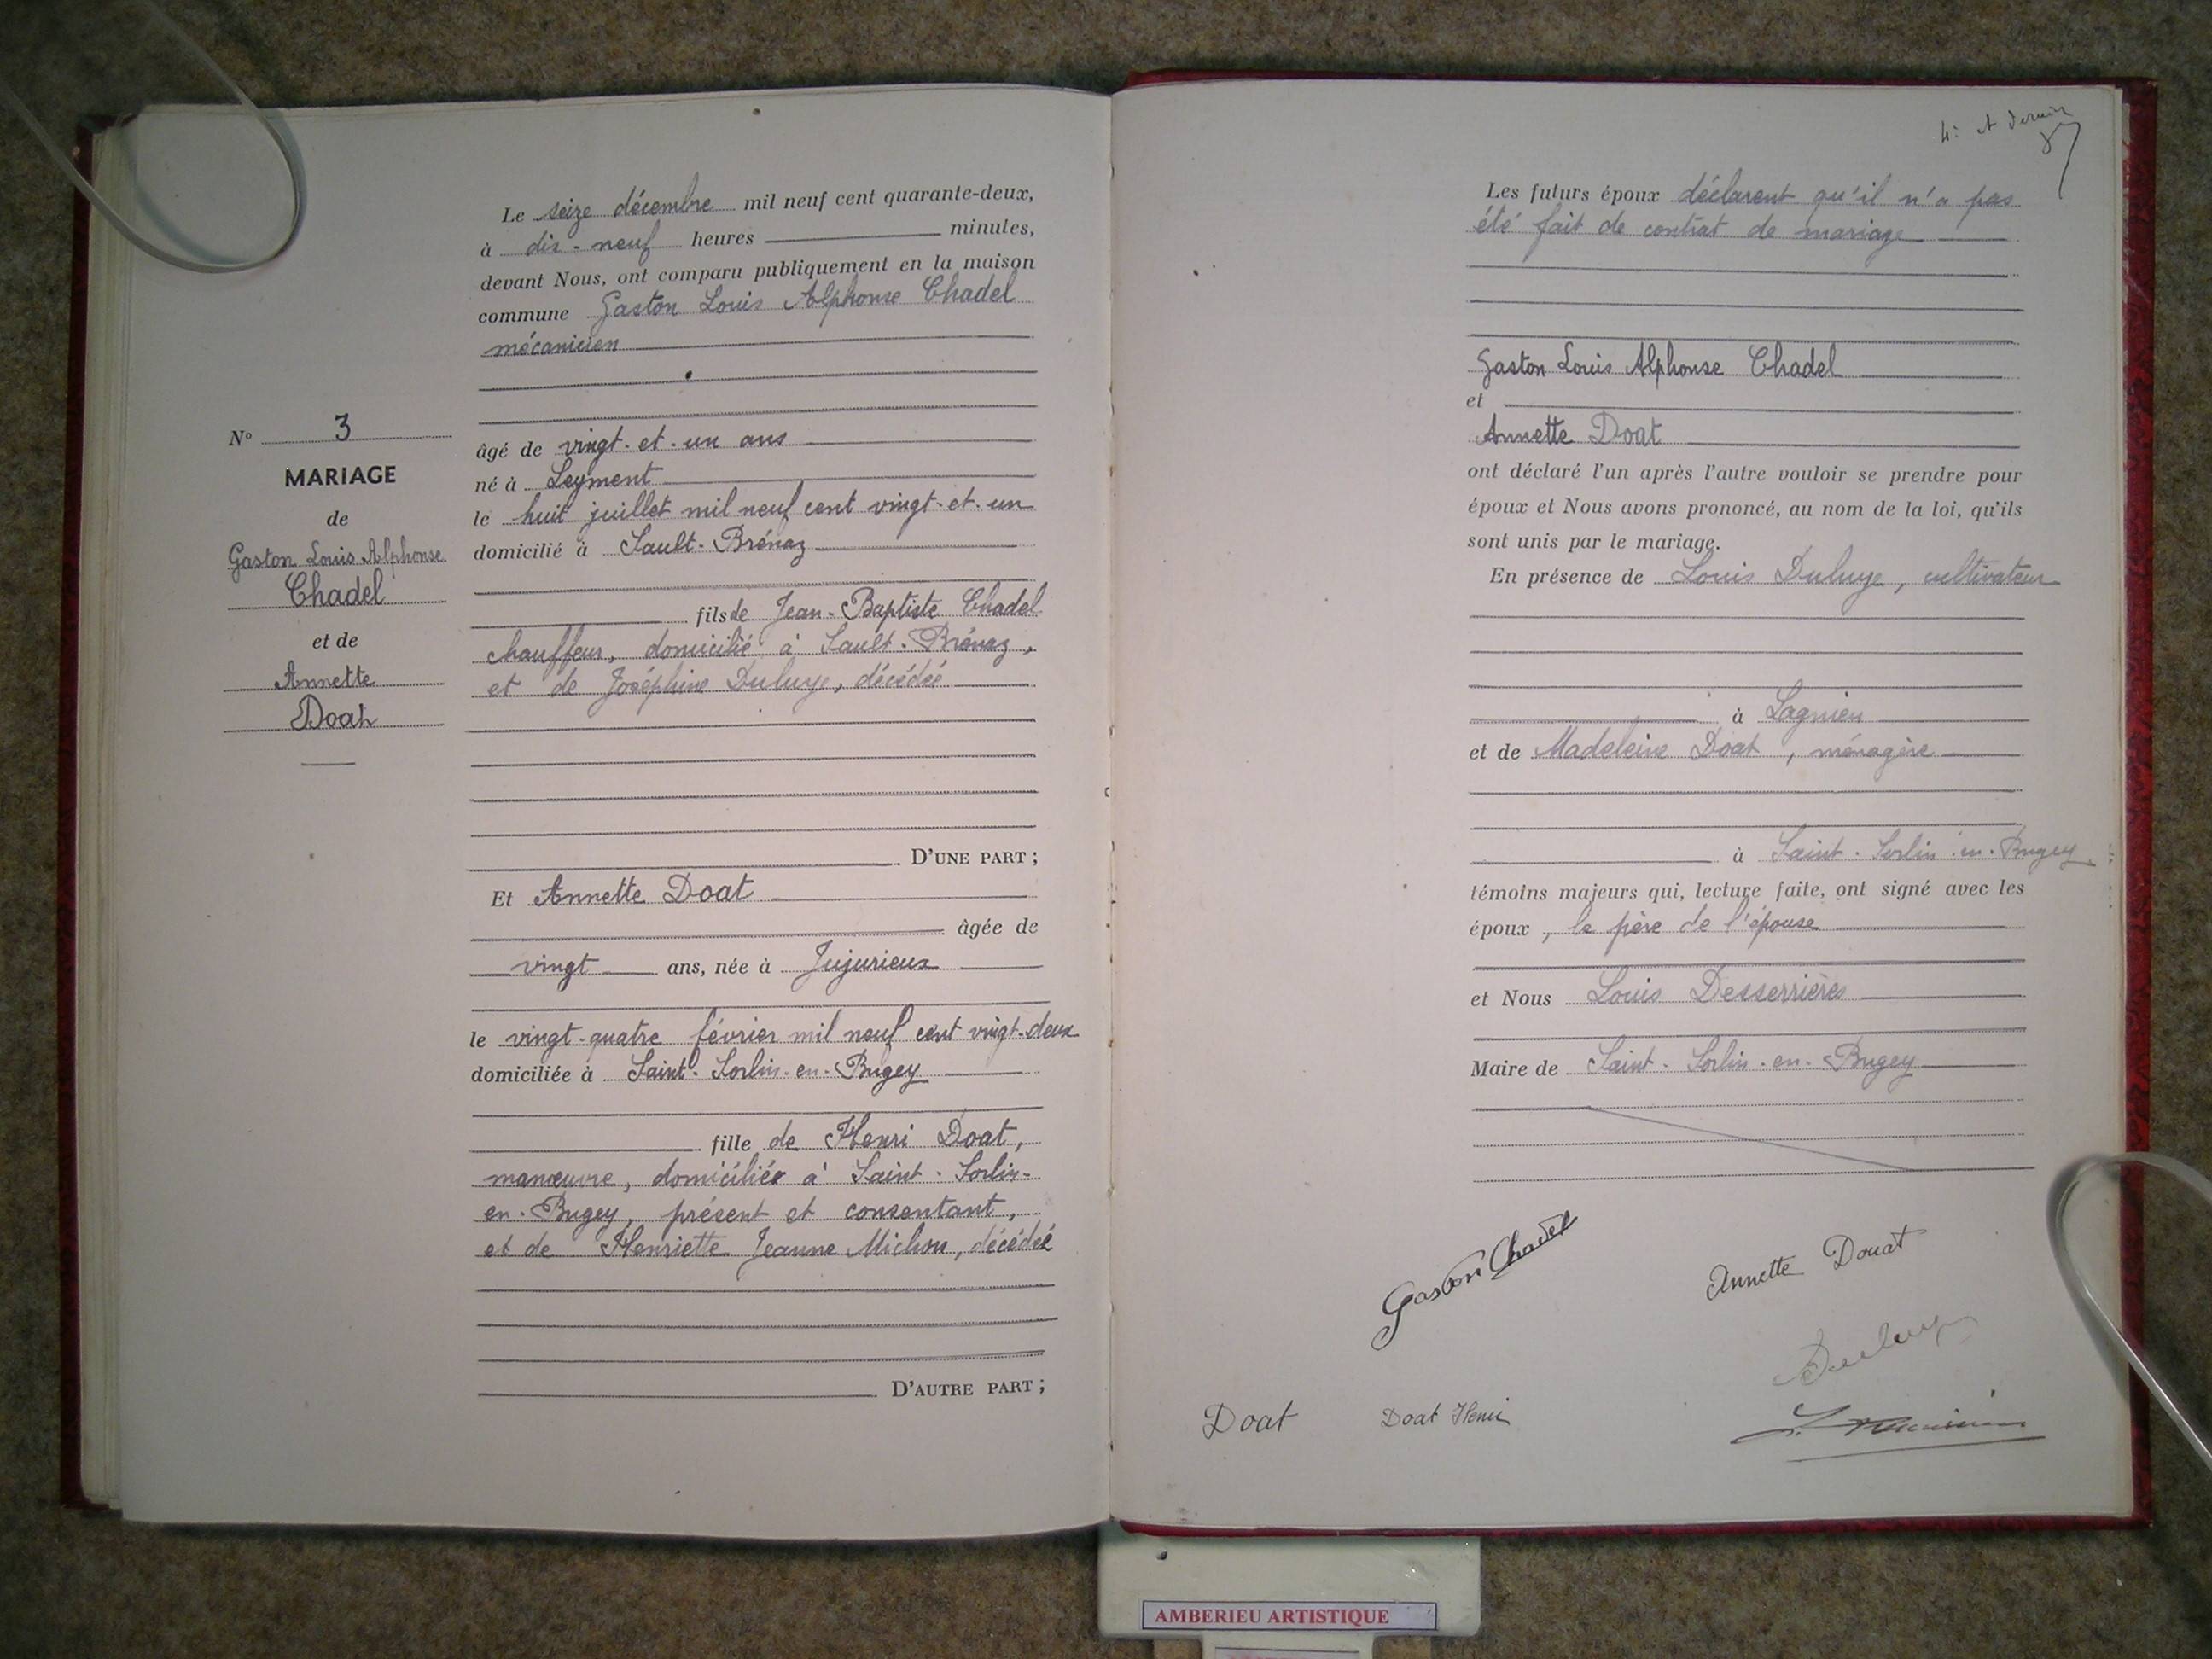 N° 3
MARIAGE
de
Gaston Louis Alphonse
Chadel
et de
Annette
Doat
Le seize décembre mil neuf cent quarante-deux,
à dix-neuf heures minutes,
devant Nous, ont comparu publiquement en la maison
commune Gaston Louis Alphonse Chadel
mécanicien
âgé de vingt-et-un ans
né à Leyment
le huit juillet mil neuf cent vingt-et-un
domicilié à Sault-Brénaz
fils de Jean-Baptiste Chadel
chauffeur, domicilié à Sault-Brénaz,
et de Joséphine Duluye, décédée
D'UNE PART ;
Et Annette Doat
âgée de
vingt ans, née à Jujurieux
le vingt-quatre février mil neuf cent vingt-deux
domiciliée à Saint-Sorlin-en-Bugey
fille de Henri Doat,
manœuvre, domicilié à Saint-Sorlin-
en-Bugey, présent et consentant,
et de Henriette Jeanne Michon, décédée
D'AUTRE PART ;
4e et dernier
Les futurs époux déclarent qu'il n'a pas
été fait de contrat de mariage
Gaston Louis Alphonse Chadel
et
Annette Doat
ont déclaré l'un après l'autre vouloir se prendre pour
époux et Nous avons prononcé, au nom de la loi, qu'ils
sont unis par le mariage.
En présence de Louis Duluye, cultivateur
à Lagnieu
et de Madeleine Doat, ménagère
à Saint-Sorlin-en-Bugey
témoins majeurs qui, lecture faite, ont signé avec les
époux, le père de l'épouse
et Nous Louis Desserrières
Maire de Saint-Sorlin-en-Bugey
Gaston Chadel
Annette Douat
Duluye
Doat
Doat Henri
AMBERIEU ARTISTIQUE